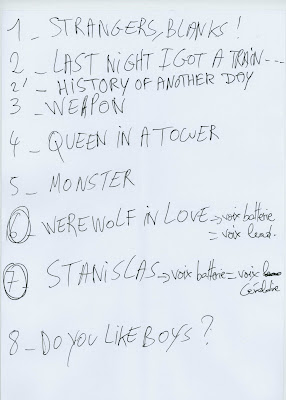 1 - STRANGERS, BLANKS !
2 - LAST NIGHT I GOT A TRAIN...
2' - HISTORY OF ANOTHER DAY
3 - WEAPON
4 - QUEEN IN A TOWER
5 - MONSTER
6 - WEREWOLF IN LOVE → voix batterie
= voix lead.
7 - STANISLAS → voix batterie = voix
Géraldine
8 - DO YOU LIKE BOYS ?